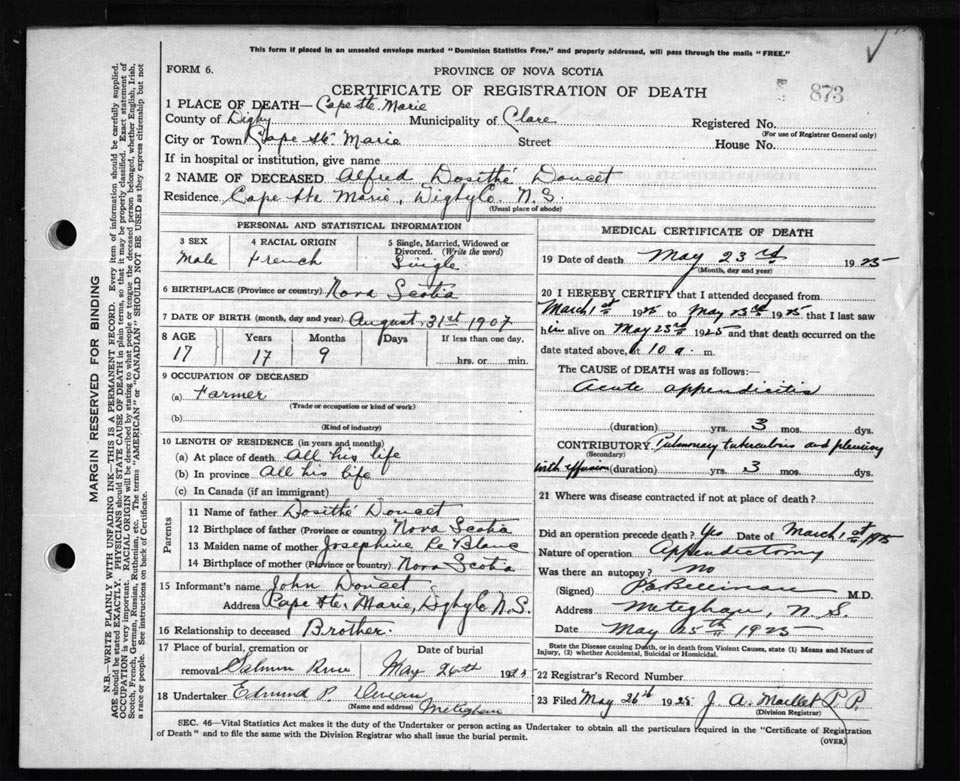 This form if placed in an unsealed envelope marked "Dominion Statistics Free," and properly addressed, will pass through the mails "FREE."
FORM 6.
PROVINCE OF NOVA SCOTIA
CERTIFICATE OF REGISTRATION OF DEATH
873
1 PLACE OF DEATH— Cape Ste. Marie
County of Digby Municipality of Clare Registered No.
(For use of Registrar General only)
City or Town Cape Ste. Marie Street House No.
If in hospital or institution, give name
2 NAME OF DECEASED Alfred Dosithé Doucet
Residence Cape Ste Marie, Digby Co. N.S.
(Usual place of abode)
PERSONAL AND STATISTICAL INFORMATION
3 SEX Male
4 RACIAL ORIGIN French
5 Single, Married, Widowed or Divorced. (Write the word) Single
6 BIRTHPLACE (Province or country) Nova Scotia
7 DATE OF BIRTH (month, day and year) August 31st 1907
8 AGE 17 Years 17 Months 9 Days If less than one day, hrs. or min.
9 OCCUPATION OF DECEASED
(a) Farmer
(Trade or occupation or kind of work)
(b)
(Kind of industry)
10 LENGTH OF RESIDENCE (in years and months)
(a) At place of death All his life
(b) In province All his life
(c) In Canada (if an immigrant)
Parents
11 Name of father Dosithé Doucet
12 Birthplace of father (Province or country) Nova Scotia
13 Maiden name of mother Josephine Le Blanc
14 Birthplace of mother (Province or country) Nova Scotia
15 Informant's name John Doucet
Address Cape Ste. Marie, Digby Co N.S.
16 Relationship to deceased Brother.
17 Place of burial, cremation or removal Salmon River
Date of burial May 26th 1925
18 Undertaker Edmund P.
(Name and address) Meteghan
MEDICAL CERTIFICATE OF DEATH
19 Date of death May 23rd 1925
(Month, day and year)
20 I HEREBY CERTIFY that I attended deceased from
March 1st 1925 to May 23rd 1925 that I last saw
him alive on May 23rd 1925 and that death occurred on the
date stated above, at 10 a. m.
The CAUSE of DEATH was as follows:—
Acute appendicitis
(duration) yrs. 3 mos. dys.
CONTRIBUTORY Pulmonary tuberculosis and pleurisy
(Secondary)
with effusion (duration) yrs. 3 mos. dys.
21 Where was disease contracted if not at place of death?
Did an operation precede death? Yes Date of March 1st 1925
Nature of operation Appendictomy
Was there an autopsy? No
(Signed) M.D.
Address Meteghan, N.S.
Date May 25th 1925
State the Disease causing Death, or in death from Violent Causes, state (1) Means and Nature of
Injury, (2) whether Accidental, Suicidal or Homicidal.
22 Registrar's Record Number
23 Filed May 26th 1925 J. A. Maillet P.P.
(Division Registrar)
SEC. 46—Vital Statistics Act makes it the duty of the Undertaker or person acting as Undertaker to obtain all the particulars required in the "Certificate of Registration
of Death" and to file the same with the Division Registrar who shall issue the burial permit.
(OVER)
MARGIN RESERVED FOR BINDING
N.B.—WRITE PLAINLY WITH UNFADING INK—THIS IS A PERMANENT RECORD. Every item of information should be carefully supplied.
AGE should be stated EXACTLY. PHYSICIANS should STATE CAUSE OF DEATH in plain terms, so that it may be properly classified. Exact statement of
OCCUPATION is very important. RACIAL ORIGIN will be described by stating to what people or tongue the deceased person belonged, whether English, Irish,
Scotch, French, German, Russian, Ruthenian, etc. The terms "AMERICAN" or "CANADIAN" SHOULD NOT BE USED as they express citizenship but not
a race or people. See instructions on back of Certificate.